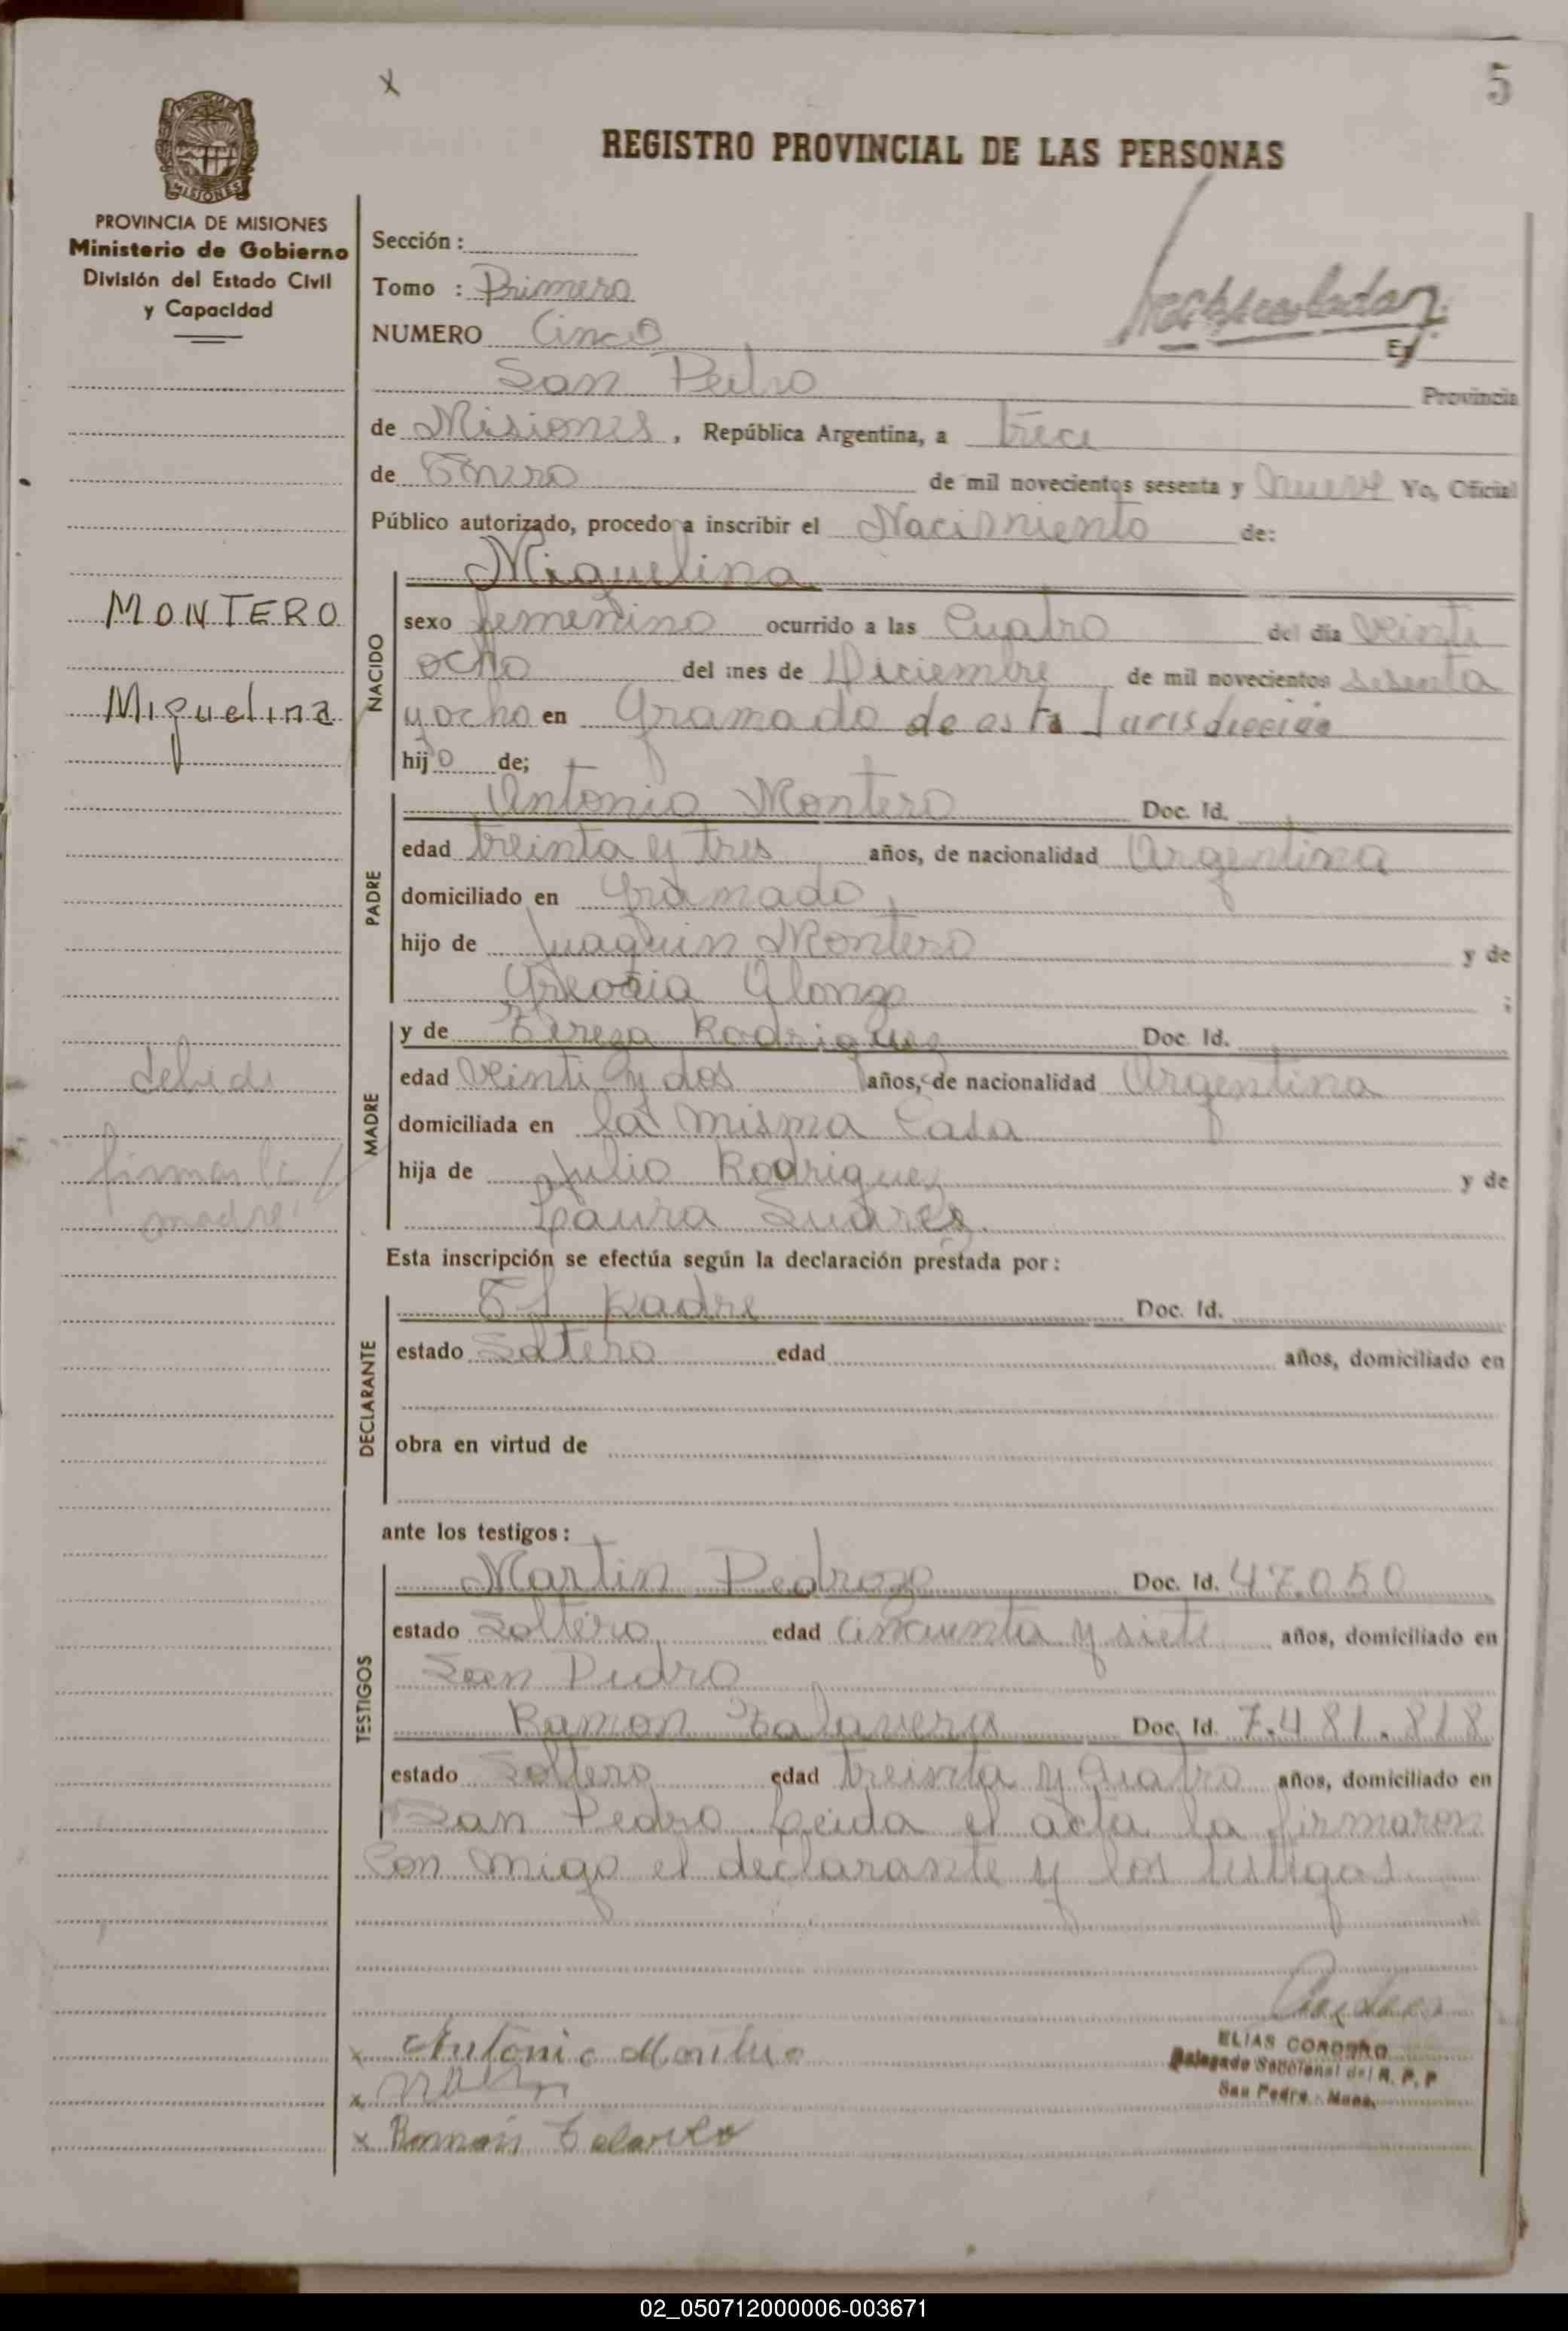 5
x
REGISTRO PROVINCIAL DE LAS PERSONAS
PROVINCIA DE MISIONES
Ministerio de Gobierno
División del Estado Civil
y Capacidad
Sección:
Tomo : Primero
NUMERO Cinco En
San Pedro Provincia
de Misiones, República Argentina, a trece
de Enero de mil novecientos sesenta y nueve Yo, Oficial
Público autorizado, procedo a inscribir el Nacimiento de:
MONTERO
Miguelina
NACIDO
Miguelina
sexo femenino ocurrido a las Cuatro del día veinti
ocho del mes de Diciembre de mil novecientos sesenta
y ocho en Gramado de esta Jurisdiccion
hijo de;
PADRE
Antonio Montero Doc. Id.
edad treinta y tres años, de nacionalidad Argentina
domiciliado en Gramado
hijo de Juaquin Montero y de
Alonzo ;
debido
firmar la
madre
MADRE
y de Tereza Rodrigues Doc. Id.
edad veinti y dos años, de nacionalidad Argentina
domiciliada en la misma Casa
hija de Julio Rodriguez y de
Laura Suares
Esta inscripción se efectúa según la declaración prestada por:
DECLARANTE
El Padre Doc. Id.
estado Soltero edad años, domiciliado en
obra en virtud de
ante los testigos:
TESTIGOS
Martin Pedrozo Doc. Id. 47.050
estado Soltero edad cincuenta y siete años, domiciliado en
San Pedro
Ramon Talavera Doc. Id. 7.481.818
estado Soltero edad treinta y Cuatro años, domiciliado en
San Pedro Leida el acta la firmaron
con migo el declarante y los testigos
x Antonio Montero
x
x Ramón
ELIAS CORDERO
Delegado Seccional del R. P. P
San Pedro - Mnes.
02_050712000006-003671